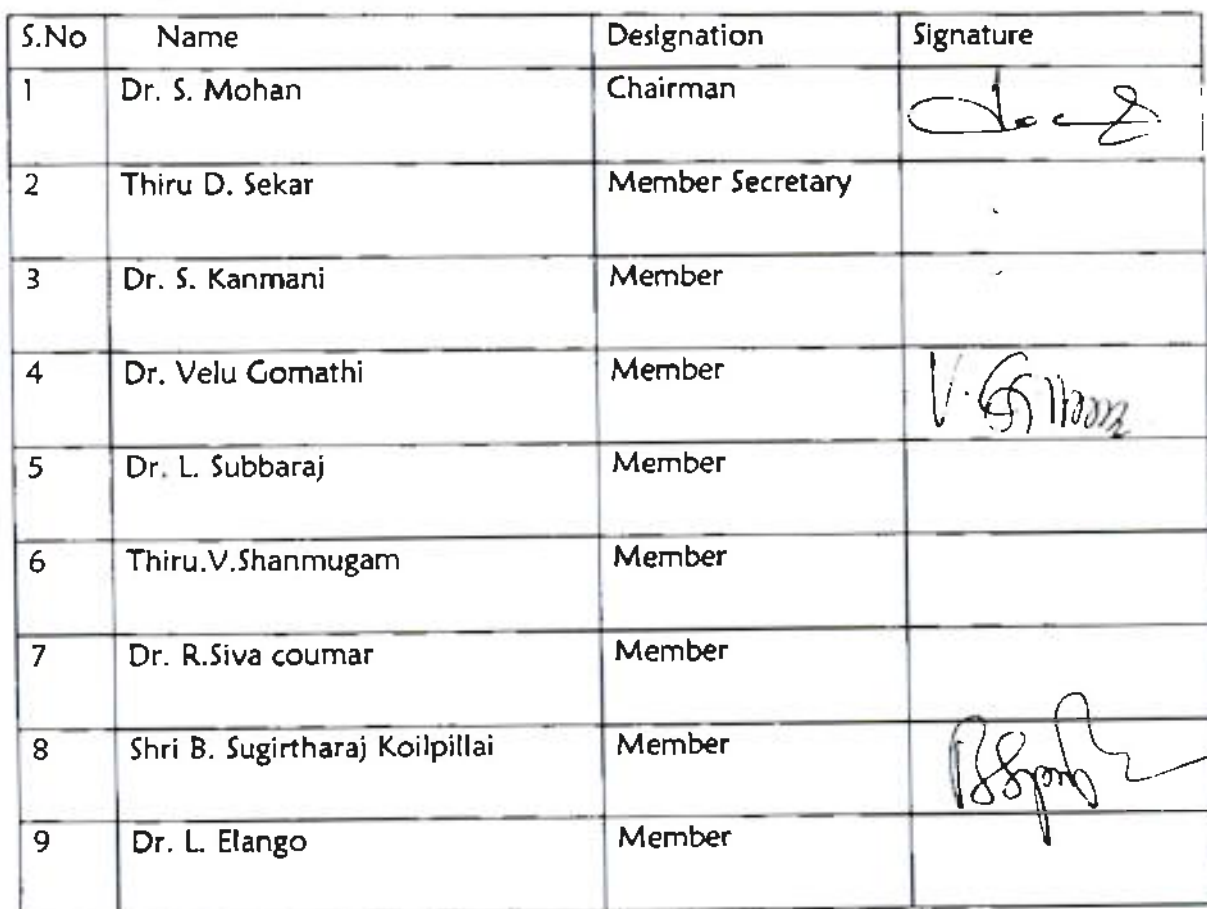 S.No Name Designation Signature
1 Dr. S. Mohan Chairman
2 Thiru D. Sekar Member Secretary
3 Dr. S. Kanmani Member
4 Dr. Velu Gomathi Member
5 Dr. L. Subbaraj Member
6 Thiru.V.Shanmugam Member
7 Dr. R.Siva coumar Member
8 Shri B. Sugirtharaj Koilpillai Member
9 Dr. L. Elango Member